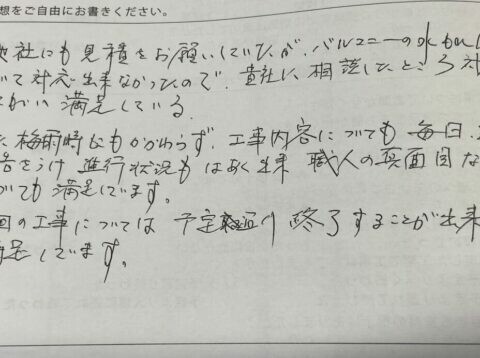 想をご自由にお書きください。
他社にも見積をお願いしていたが、バルコニーの水
いて対応出来なかったので、貴社に相談したところ対
満足している。
梅雨時にもかかわらず、工事内容についても毎日、
告をうけ進行状況もはあく出来職人の真面目な
いても満足しています。
回の工事については予定通り終了することが出来
足しています。